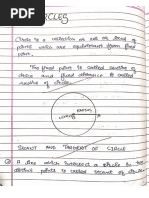 CIRCLES
Circle is a collection of all of points of
plane which are equidistant from fixed
point.
The fixed point is called centre of
circle and fixed distance is called
radius of circle.
centre
RADIUS
SECANT AND TANGENT OF CIRCLE
A line which intersect a circle in two
distinct points is called secant of circle